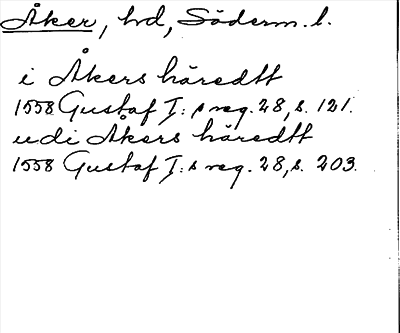 Åker, hd, Söderm. l.
i Åkers häredtt
1558 Gustaf I:s reg. 28, s. 121.
udi Åkers häredtt
1558 Gustaf I:s reg. 28, s. 203.